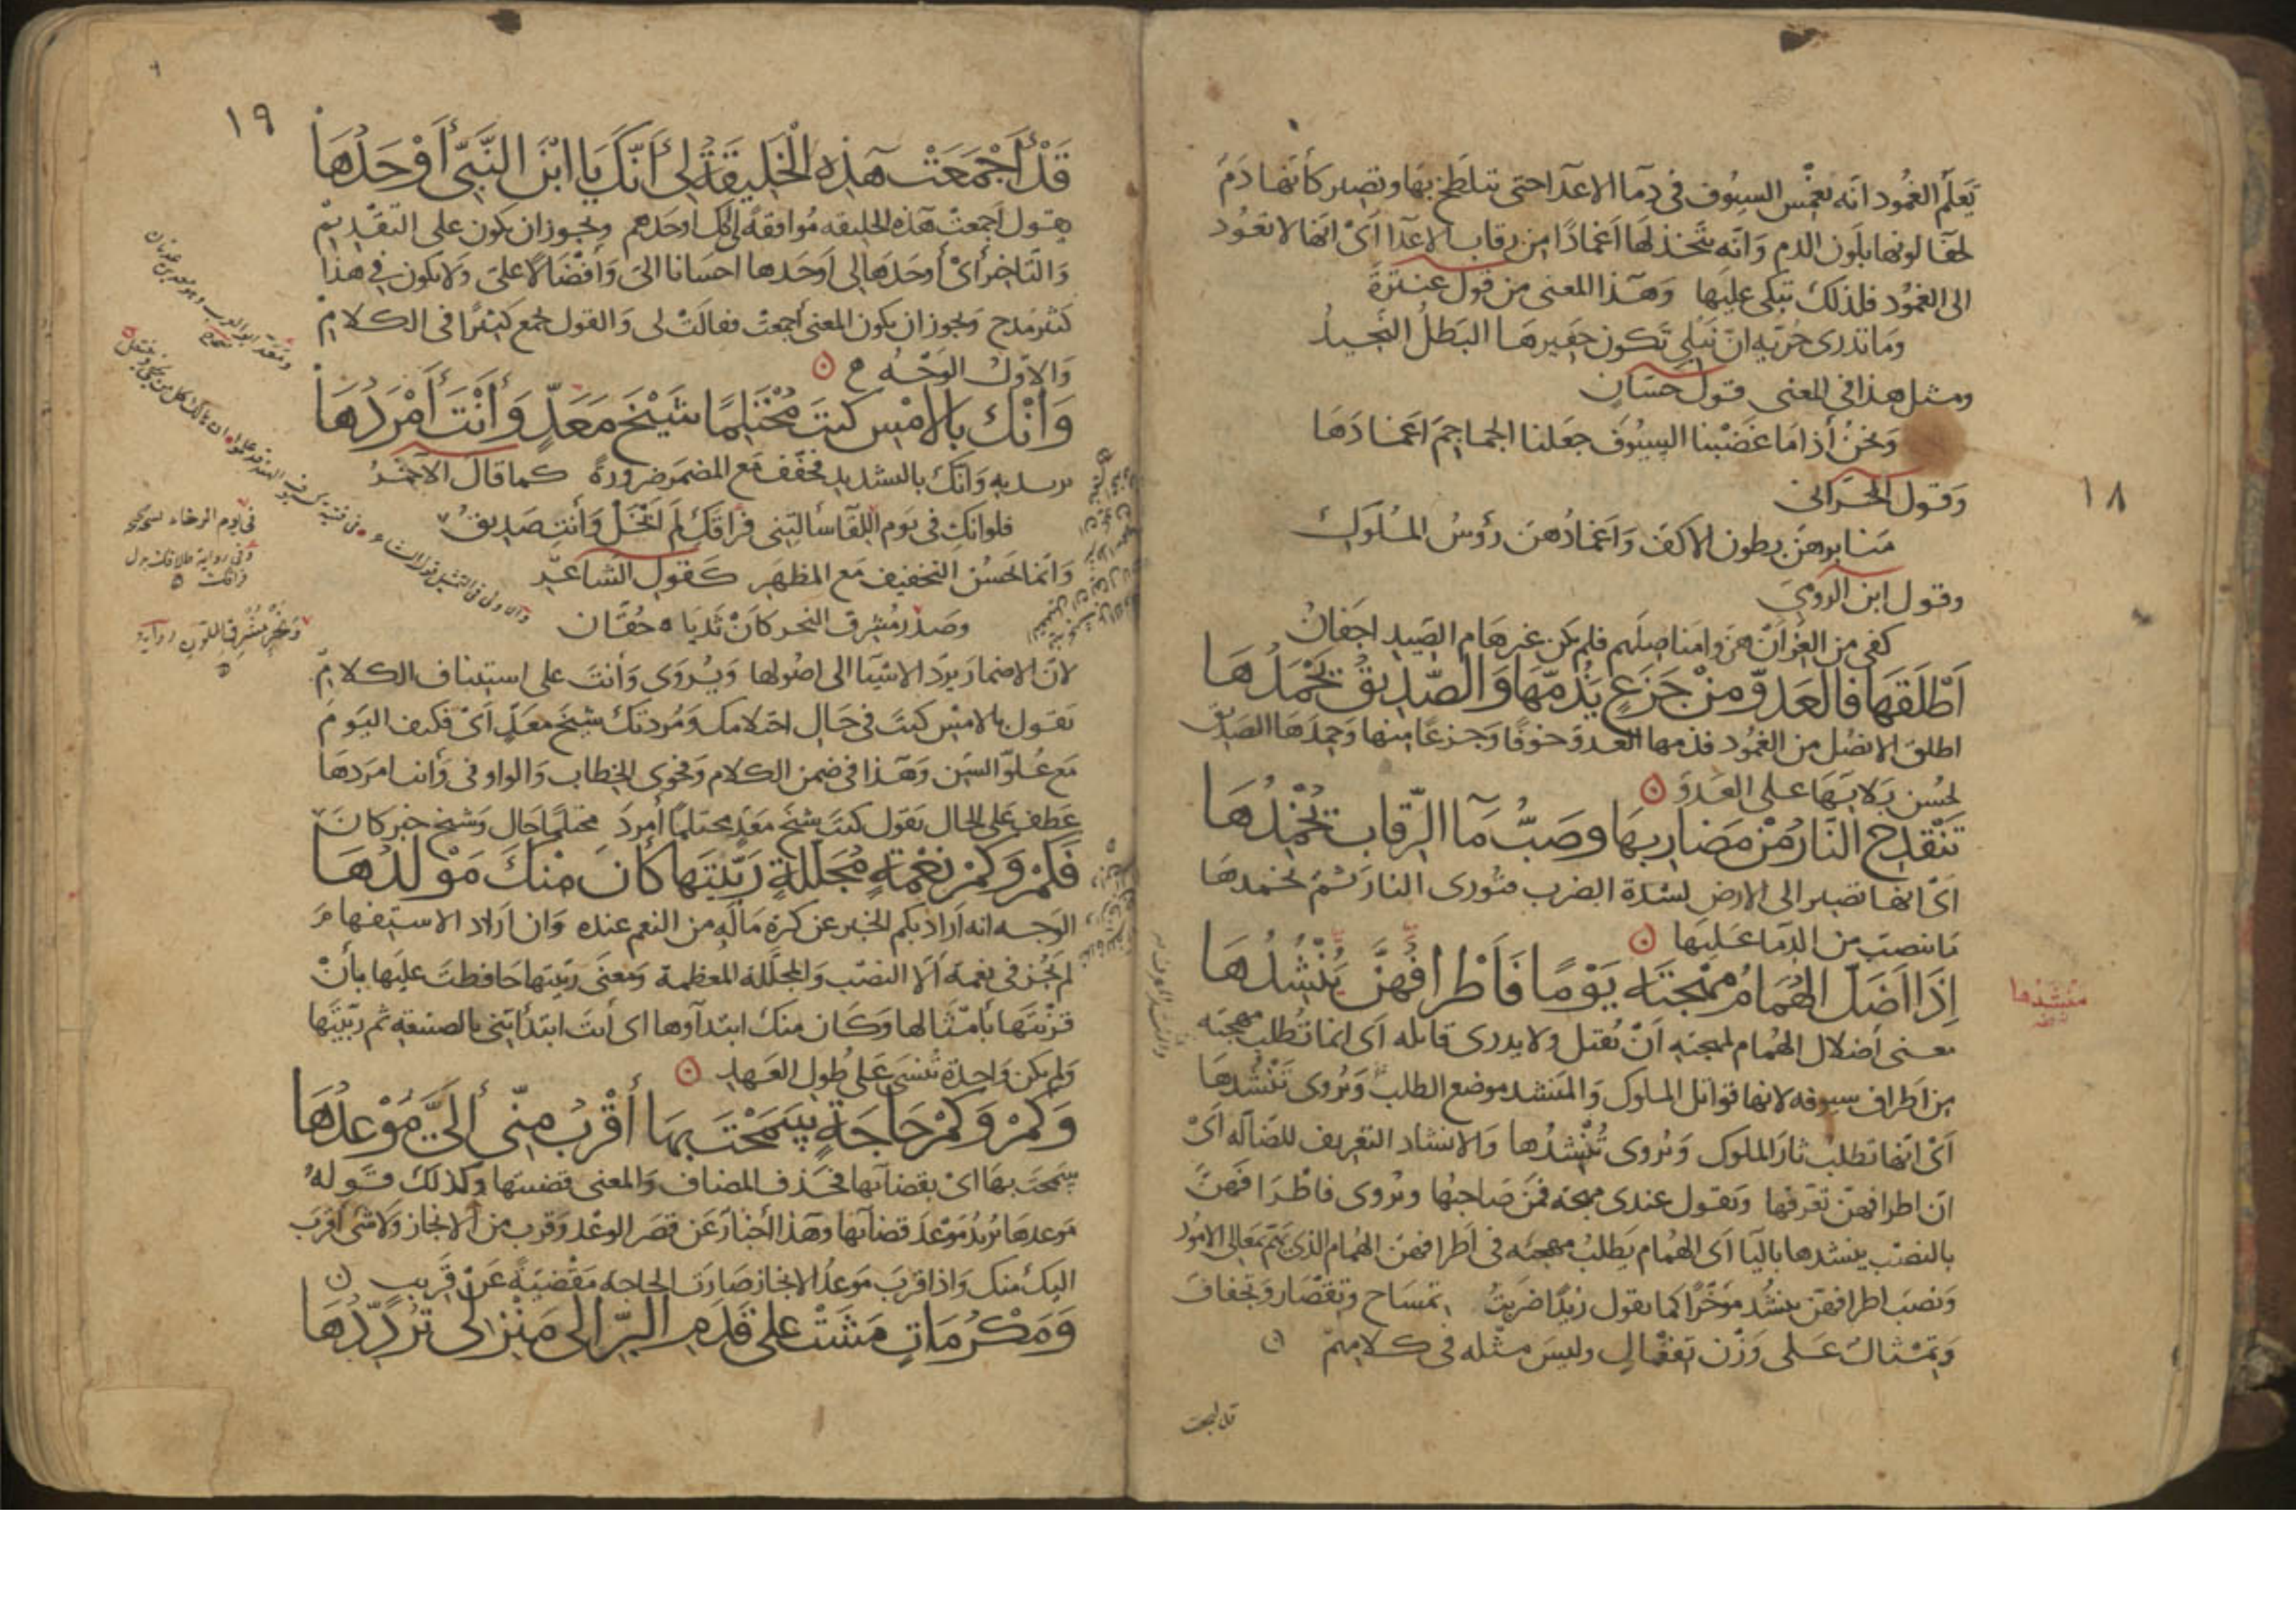 ١٨
تَعلَم الغُمود انّه يغمس السيُوف في دمآ الاعدآ حتى تتلطخ بهَا وتصير كأنها دَم
لخفآ لونها بلَون الدم وَانّه يتّخذ لهَا اَغمادًا من رقاب الاعدآ اَىْ انّها لا تعُود
الى الغمُود فلذلك تبكى عليهَا وَهَذا المعنى من قول عنترَة
وَمَا تدرى جُرَيّه انّ نَبْلى تكون جفيرهَا البَطلُ النّجيدُ
ومثل هذا في المعنى قول حسّان
وَنحْنُ اذا مَا عَضَبْنا السيُوفُ جعَلنا الجماجمَ اغمادَهَا
وَقول الحَرّانى
مَنابرهنّ بطون الاكفّ وَاَغمادُهنّ رؤسُ المُلوك
وقول ابن الرومى
كفى من العزّ انّ هزّوا مناصلهم فلم يكن غير هَام الصّيد اجفانُ
اَطْلَقَهَا فَالعَدوُّ مِنْ جَزَعٍ يَذُمّهَا وَالصّديقُ يَحْمَدُهَا
اطلق الانصُل من الغمُود فذمها العَدوّ خوفًا وَجزعًا منها وَحمدَهَا الصديق
لحُسن بَلائهَا على العَدوّ
تَنْقَدِحُ النَّارُ مِنْ مَضَاربهَا وصَبُّ مآ الرّقاب يُخْمِدُهَا
اَىْ انها تصير الى الارض لشدّة الضرب فتورى النار ثم يخمدهَا
مَا ينصبّ من الدّمآ عَليهَا
اِذَا اَضَلّ الهُمَامُ مُهْجَتَه يَوْمًا فَاَطْرافُهُنَّ يَنْشُدُهَا
مَنْشَدُها
معنى اضلال الهُمام لمهجته اَنْ يُقتل ولا يدرى قاتله اَى انما تُطلب مهجته
من اَطراف سيوفه لانها قواتل الملوك وَالمَنشد موضع الطلب وَيُروى تَنْشُدهَا
اَىْ انّها تطلبُ ثارَ الملوك وَيُروى تُنْشِدُها وَالانشاد التعريف للضالّه اَىْ
انّ اطرافهنّ تعرّفها وَتقول عندى مهجة فمَنْ صَاحبُها ويُروى فاَطْرَافَهُنّ
بالنصْب ينشدها باليآ اَى الهُمام يَطلبُ مهجته في اَطرافهنّ الهُمام الذى يهتمّ بمعالى الامُور
وَنصَبَ اطرافهنّ بينشُد مؤخّرًا كما تقول زيدًا ضربتُ تمسَاح وتقصَار وَتجفاف
وَتمْثال عَلى وَزْن تِفعَال وليسَ مثله في كلامهمْ
قد اجمعت
١٩
قَدْ اَجْمَعَتْ هَذِه الْخَلِيقَةُ لِى اَنّكَ يَا ابْنَ النَّبىّ اَوْحَدُهَا
يقول اَجمعتْ هذه الخليقه مُوافقةً لى انّك اوحَدهم وَيجوز ان يكون على التقديْم
وَالتّاخير اَىْ اَوحَدَهَا لى اَوحَدها احسَانا الىّ وَافْضَالًا علىّ وَلا يكون في هَذا
كثير مَدح وَيجوز ان يكون المعنى اَجمعتْ فقالتْ لى وَالقول يُضمَر كثيرًا في الكلامْ
وَالاوّل الوَجْه
وَاَنْكَ بالامْسِ كنتَ مُحْتَلِمًا شَيْخَ مَعَدٍّ وَاَنْتَ اَمْرَدُهَا
يريد به وَانّكَ بالتشديد فخفّف مَع المضمَر ضرورةً كما قال الآخَرُ
فلو انْكِ في يَوم اللقآ سألتِنى فراقَكِ لَمْ اَبْخَلْ وَاَنتِ صَديقُ
وَانما يحسُن التخفيف مَع المظهَر كقول الشّاعر
وصَدْرٍ مشرِق النحر كاَنْ ثَدياه حُقّان
لانّ الاضمارَ يردّ الاشيآ الى اصُولها وَيُروَى وَاَنتَ على استيناف الكلامْ
يقول بالامسْ كنتَ في حَال احتلامك وَمُردتك شيخَ مَعَدّ اَىْ فكيف اليَومَ
مَع عُلوّ السنّ وَهَذا في ضمن الكلام وَفحوى الخطاب وَالواو في وَاَنت امرَدهَا
عَطف على الحَال يقول كنتَ شيخَ مَعَدٍّ محتلمًا اَمردَ محتلمًا حَال وَشيخ خبر كانَ
فَكَمْ وَكَمْ نِعْمَةٍ مُجَلّلةٍ رَبّيْتَهَا كَانَ مِنْكَ مَوْلِدُهَا
الوَجه انه اَرادَ بكم الخبر عن كثرة مَا لَه من النعم عنده وَان اَرَاد الاستفهامَ
لم يَجُز في نعمة الّا النصْب وَالمجلّلة المعظمة وَمعنَى ربيتها حَافظتَ عليها باَنْ
قرَنْتَهَا باَمْثالها وَكَانَ منك ابتدآؤها اى اَنتَ ابتدأتنى بالصنيعه ثم ربّيتَها
وَلم يكن وَاحِدة تُنسَى عَلى طُول العَهد
وَكَمْ وَكَمْ حَاجَةٍ سَمَحْتَ بهَا اَقْرَبُ مِنّى اِلَىَّ مَوْعِدُهَا
سمحتَ بهَا اَىْ بقضآئها فحَذف المضاف وَالمعنى قضيتها وكذلك قَولهُ
مَوعدهَا يُريد مَوْعدَ قضآئها وهَذا اخبَار عَن قصَر الوعْد وَقربه من الانجاز وَلا شىء اَقربَ
اليكَ منك وَاذا قربَ مَوعدُ الانجاز صَارَت الحاجة مَقْضيّةً عَنْ قَريبٍ
وَمَكْرُمَاتٍ مَشَتْ عَلى قَدَمِ الْبِرِّ الى مَنْزِلى تُرَدِّدُهَا